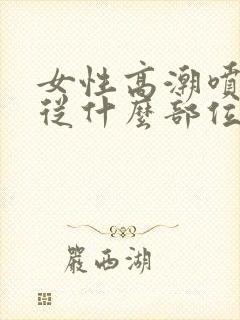 女性高潮噴
從什麼部位
嚴西湖